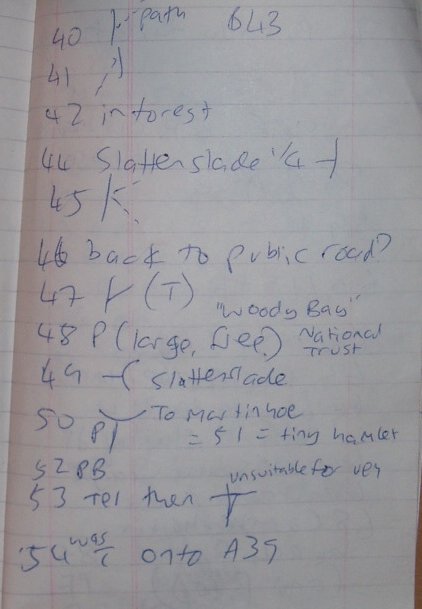 40 path B43
41
42 interest
44 Slattenslade 1/4
45
46 back to public road?
47 (T)
"Woody Bay"
48 P (large, free) National Trust
49 Slattenslade
50 P To Martinhoe
= 51 = tiny hamlet
52 PB
unsuitable for veh
53 Tel then
54 was onto A39